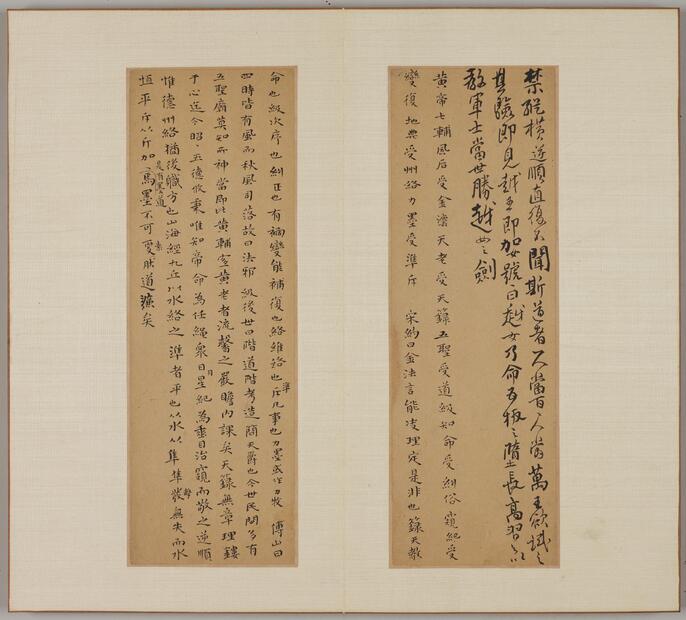 禁縱橫逆順直復不聞斯道者一人當百百人當萬王欲試之
其驗即見越王即加女號曰越女乃命五板之隊長高習之以
教軍士當世勝越女之劍
黃帝七輔風后受金法天老受天籙五聖受道級知命受糾俗窺紀受
變復地典受州絡力墨受準斥 宋約曰金法言能決理定是非也籙天教
命也級次序也糾正也有禍變能補復也絡維絡也準斥凡事也力墨或作力牧 傅山曰
四時皆有風而秋風司落故曰法邪 級後世曰階道階考造簡天爵也今世民間多有
五聖廟莫知所神當即此黃輔室黃老者流馨之嚴瞻內課矣天籙無章理鏤
于心迄今昭五德攸秉唯知帝命為任繩象日月星紀為垂日治窺而敬之逆順
惟德州絡猶後職方也山海經九丘以水絡之準者平也以水从隼隼聲發無失而水
恆平斤以斤加焉墨不可變是有墨道素朕道蕪矣